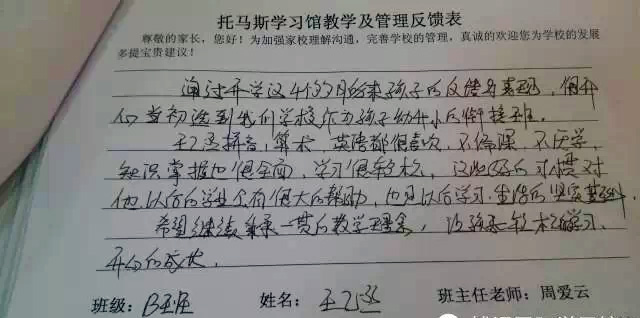 托马斯学习馆教学及管理反馈表
尊敬的家长，您好！为加强家校理解沟通，完善学校的管理，真诚的欢迎您为学校的发展
多提宝贵建议！
通过开学这4个多月的来孩子的反馈与表现，很开
心当初选到我们学校作为孩子幼升小的衔接班。
拼音、算术、英语都很喜欢，不偏课，不厌学，
知识掌握也很全面，学习很轻松，这些好的习惯对
他以后的学业会有很大的帮助，也是以后学习、生活的坚实基础
希望继续秉承一贯的教学理念，让孩子轻松学习、
开心的成长。
班级：B班 姓名：王 班主任老师：周爱云